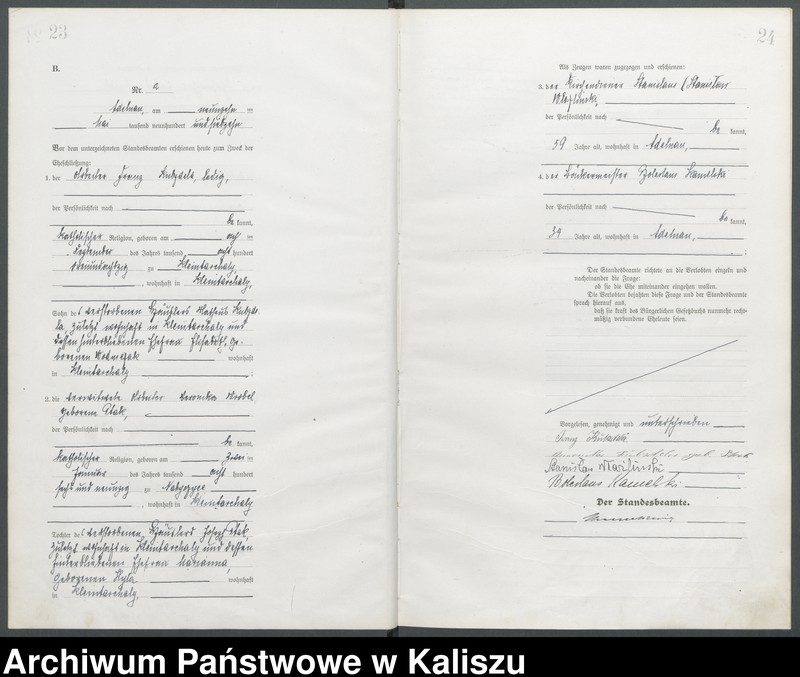 23
B.
Nr. 2
Adelnau, am neunzehn ten
Mai tausend neunhundert und siebzehn
Vor dem unterzeichneten Standesbeamten erschienen heute zum Zweck der
Eheschließung:
1. der Arbeiter Franz ledig,
der Persönlichkeit nach
be kannt,
katholischer Religion, geboren am ten
des Jahres tausend acht hundert
dreiundachtzig zu Kleintarchaly
, wohnhaft in Kleintarchaly,
Sohn des verstorbenen Häuslers Matheus
la, zuletzt wohnhaft in Kleintarchaly und
dessen hinterbliebenen Ehefrau Elisabeth ge-
borenen wohnhaft
in Kleintarchaly ;
2. die verwitwete Arbeiter Veronika
geborene Ptak,
der Persönlichkeit nach
be kannt,
katholischer Religion, geboren am zwei ten
Januar des Jahres tausend acht hundert
sechs und neunzig zu
, wohnhaft in Kleintarchaly
Tochter des verstorbenen Häuslers Josef Ptak,
zuletzt wohnhaft in Kleintarchaly und dessen
hinterbliebenen Ehefrau Marianna,
geborenen wohnhaft
in Kleintarchaly.
24
Als Zeugen waren zugezogen und erschienen:
3. der Kirchendiener Stanislaus (Stanislaw
der Persönlichkeit nach
be kannt,
59 Jahre alt, wohnhaft in Adelnau,
4. der Bäckermeister Boleslaus Kamelski
der Persönlichkeit nach
be kannt,
39 Jahre alt, wohnhaft in Adelnau,
Der Standesbeamte richtete an die Verlobten einzeln und
nacheinander die Frage:
ob sie die Ehe miteinander eingehen wollen.
Die Verlobten bejahten diese Frage und der Standesbeamte
sprach hierauf aus,
daß sie kraft des Bürgerlichen Gesetzbuchs nunmehr recht-
mäßig verbundene Eheleute seien.
Vorgelesen, genehmigt und unterschrieben
Stanisław
Boleslaus Kamelski
Der Standesbeamte.
Archiwum Państwowe w Kaliszu